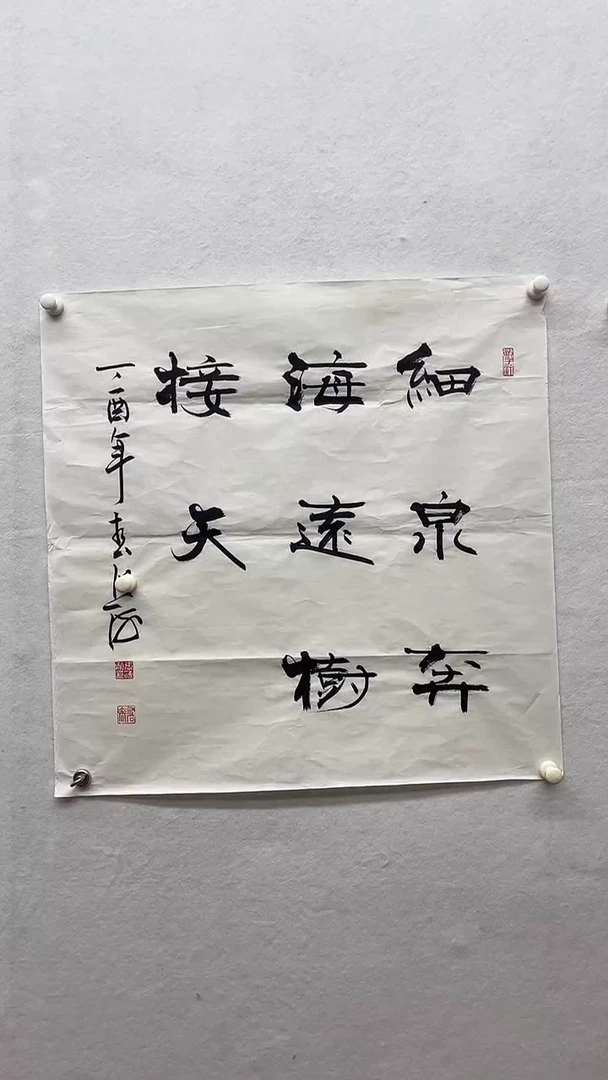 細泉奔
海遠樹
接天
丁酉年